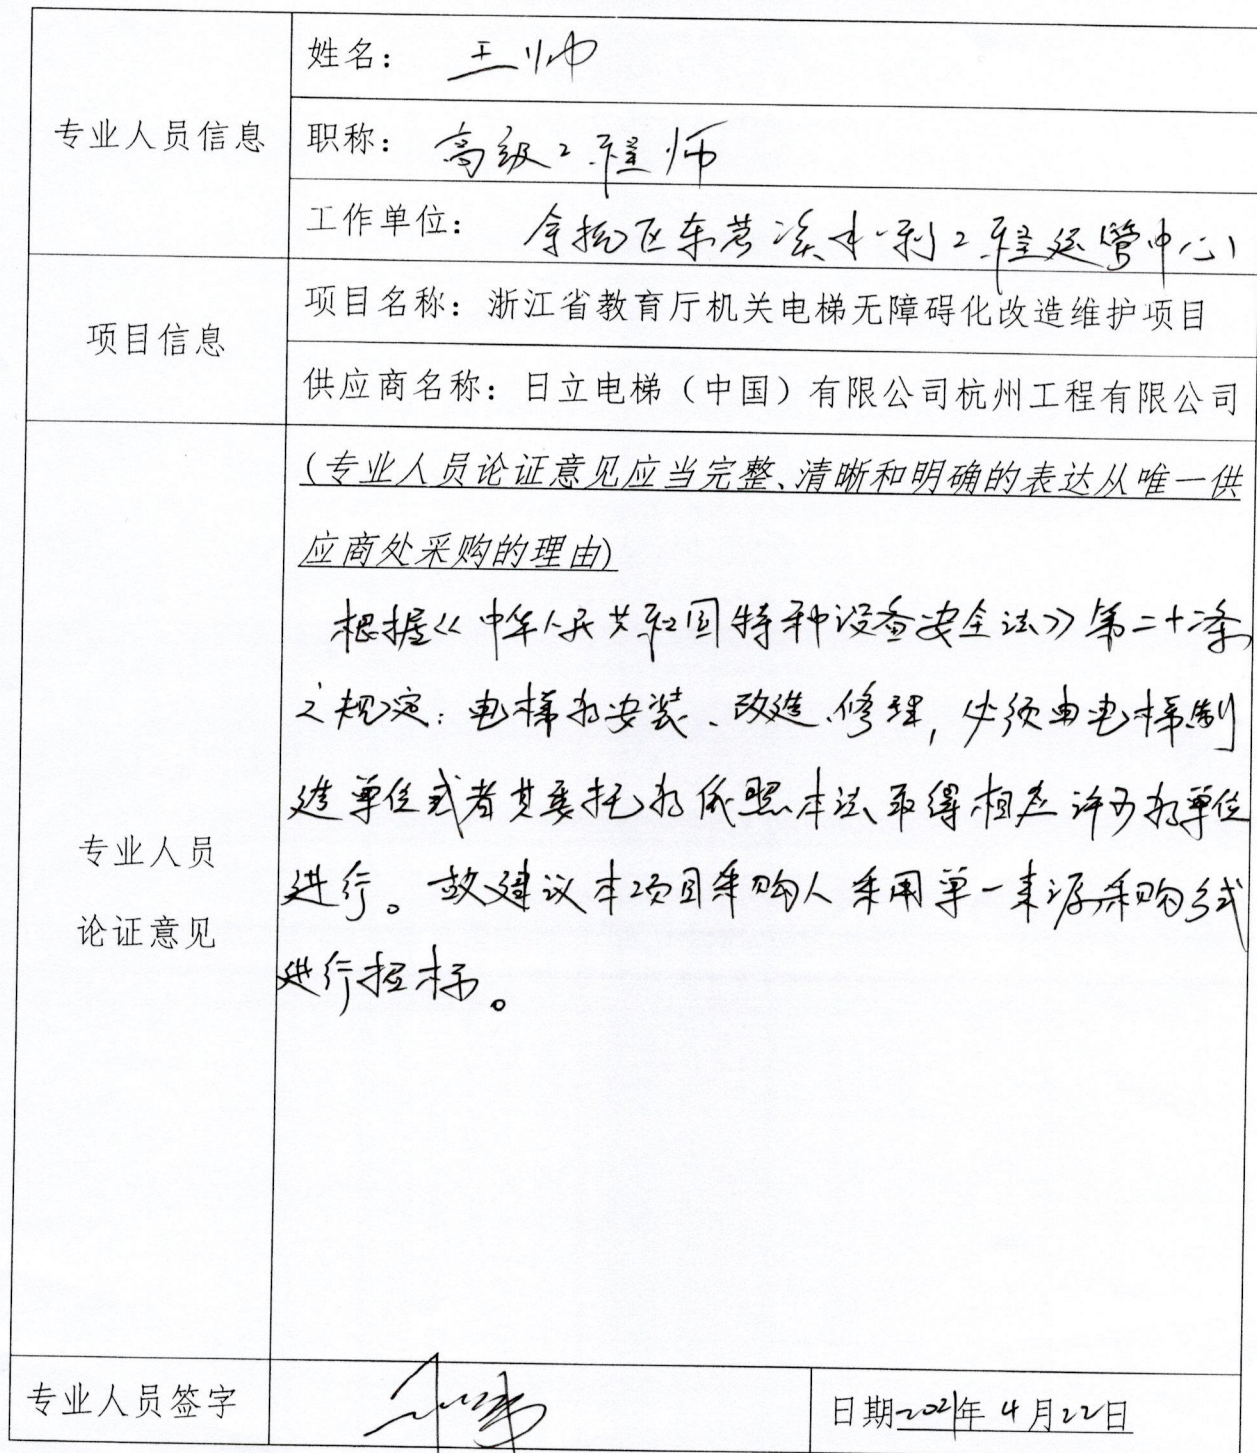 专业人员信息
姓名： 王帅
职称： 高级工程师
工作单位： 余杭区东苕溪水利工程运管中心
项目信息
项目名称：浙江省教育厅机关电梯无障碍化改造维护项目
供应商名称：日立电梯（中国）有限公司杭州工程有限公司
专业人员
论证意见
(专业人员论证意见应当完整、清晰和明确的表达从唯一供
应商处采购的理由)
根据《中华人民共和国特种设备安全法》第二十二条
之规定：电梯的安装、改造、修理，必须由电梯制
造单位或者其委托的依照本法取得相应许可的单位
进行。故建议本项目采购人采用单一来源采购方式
进行招标。
专业人员签字
日期2021年4月22日